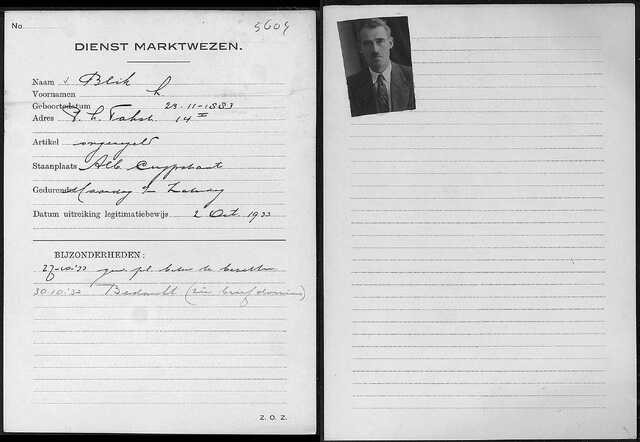 No. 5609
DIENST MARKTWEZEN.
Naam v. Blik
Voornamen L.
Geboortedatum 23-11-1883
Adres 14 II
Artikel ongeregeld
Staanplaats Alb. Cuypstraat
Gedurende Maandag t/m Zaterdag
Datum uitreiking legitimatiebewijs 2 Oct. 1933
BIJZONDERHEDEN:
27-10-'33 te bezetten
30.10.'33 Bedankt (zie brief
Z. O. Z.